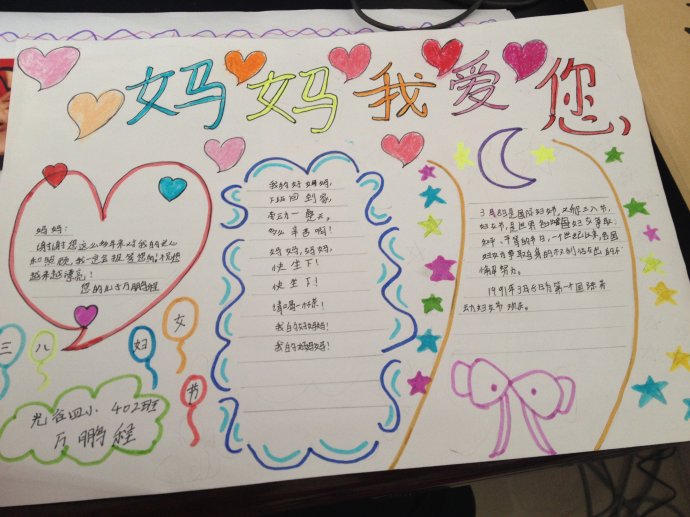 妈妈我爱您
妈妈：
谢谢您这么多年来对我的关心
和照顾,我一定会报答您的!祝您
越来越漂亮!
您的儿子万鹏程
三八妇女节
光谷四小 402班
万鹏程
我的好妈妈,
下班回到家,
劳动了一整天,
多么辛苦啊!
妈妈,妈妈,
快坐下!
快坐下!
请喝一杯茶!
我的好妈妈!
我的好妈妈!
3月8日是国际妇女节,又称三八节,
妇女节,是世界各国妇女争取
和平、平等的节日,一个世纪以来,各国
妇女为争取自身的权利作出
懈努力。
年3月8日为第一个国际劳
动妇女节